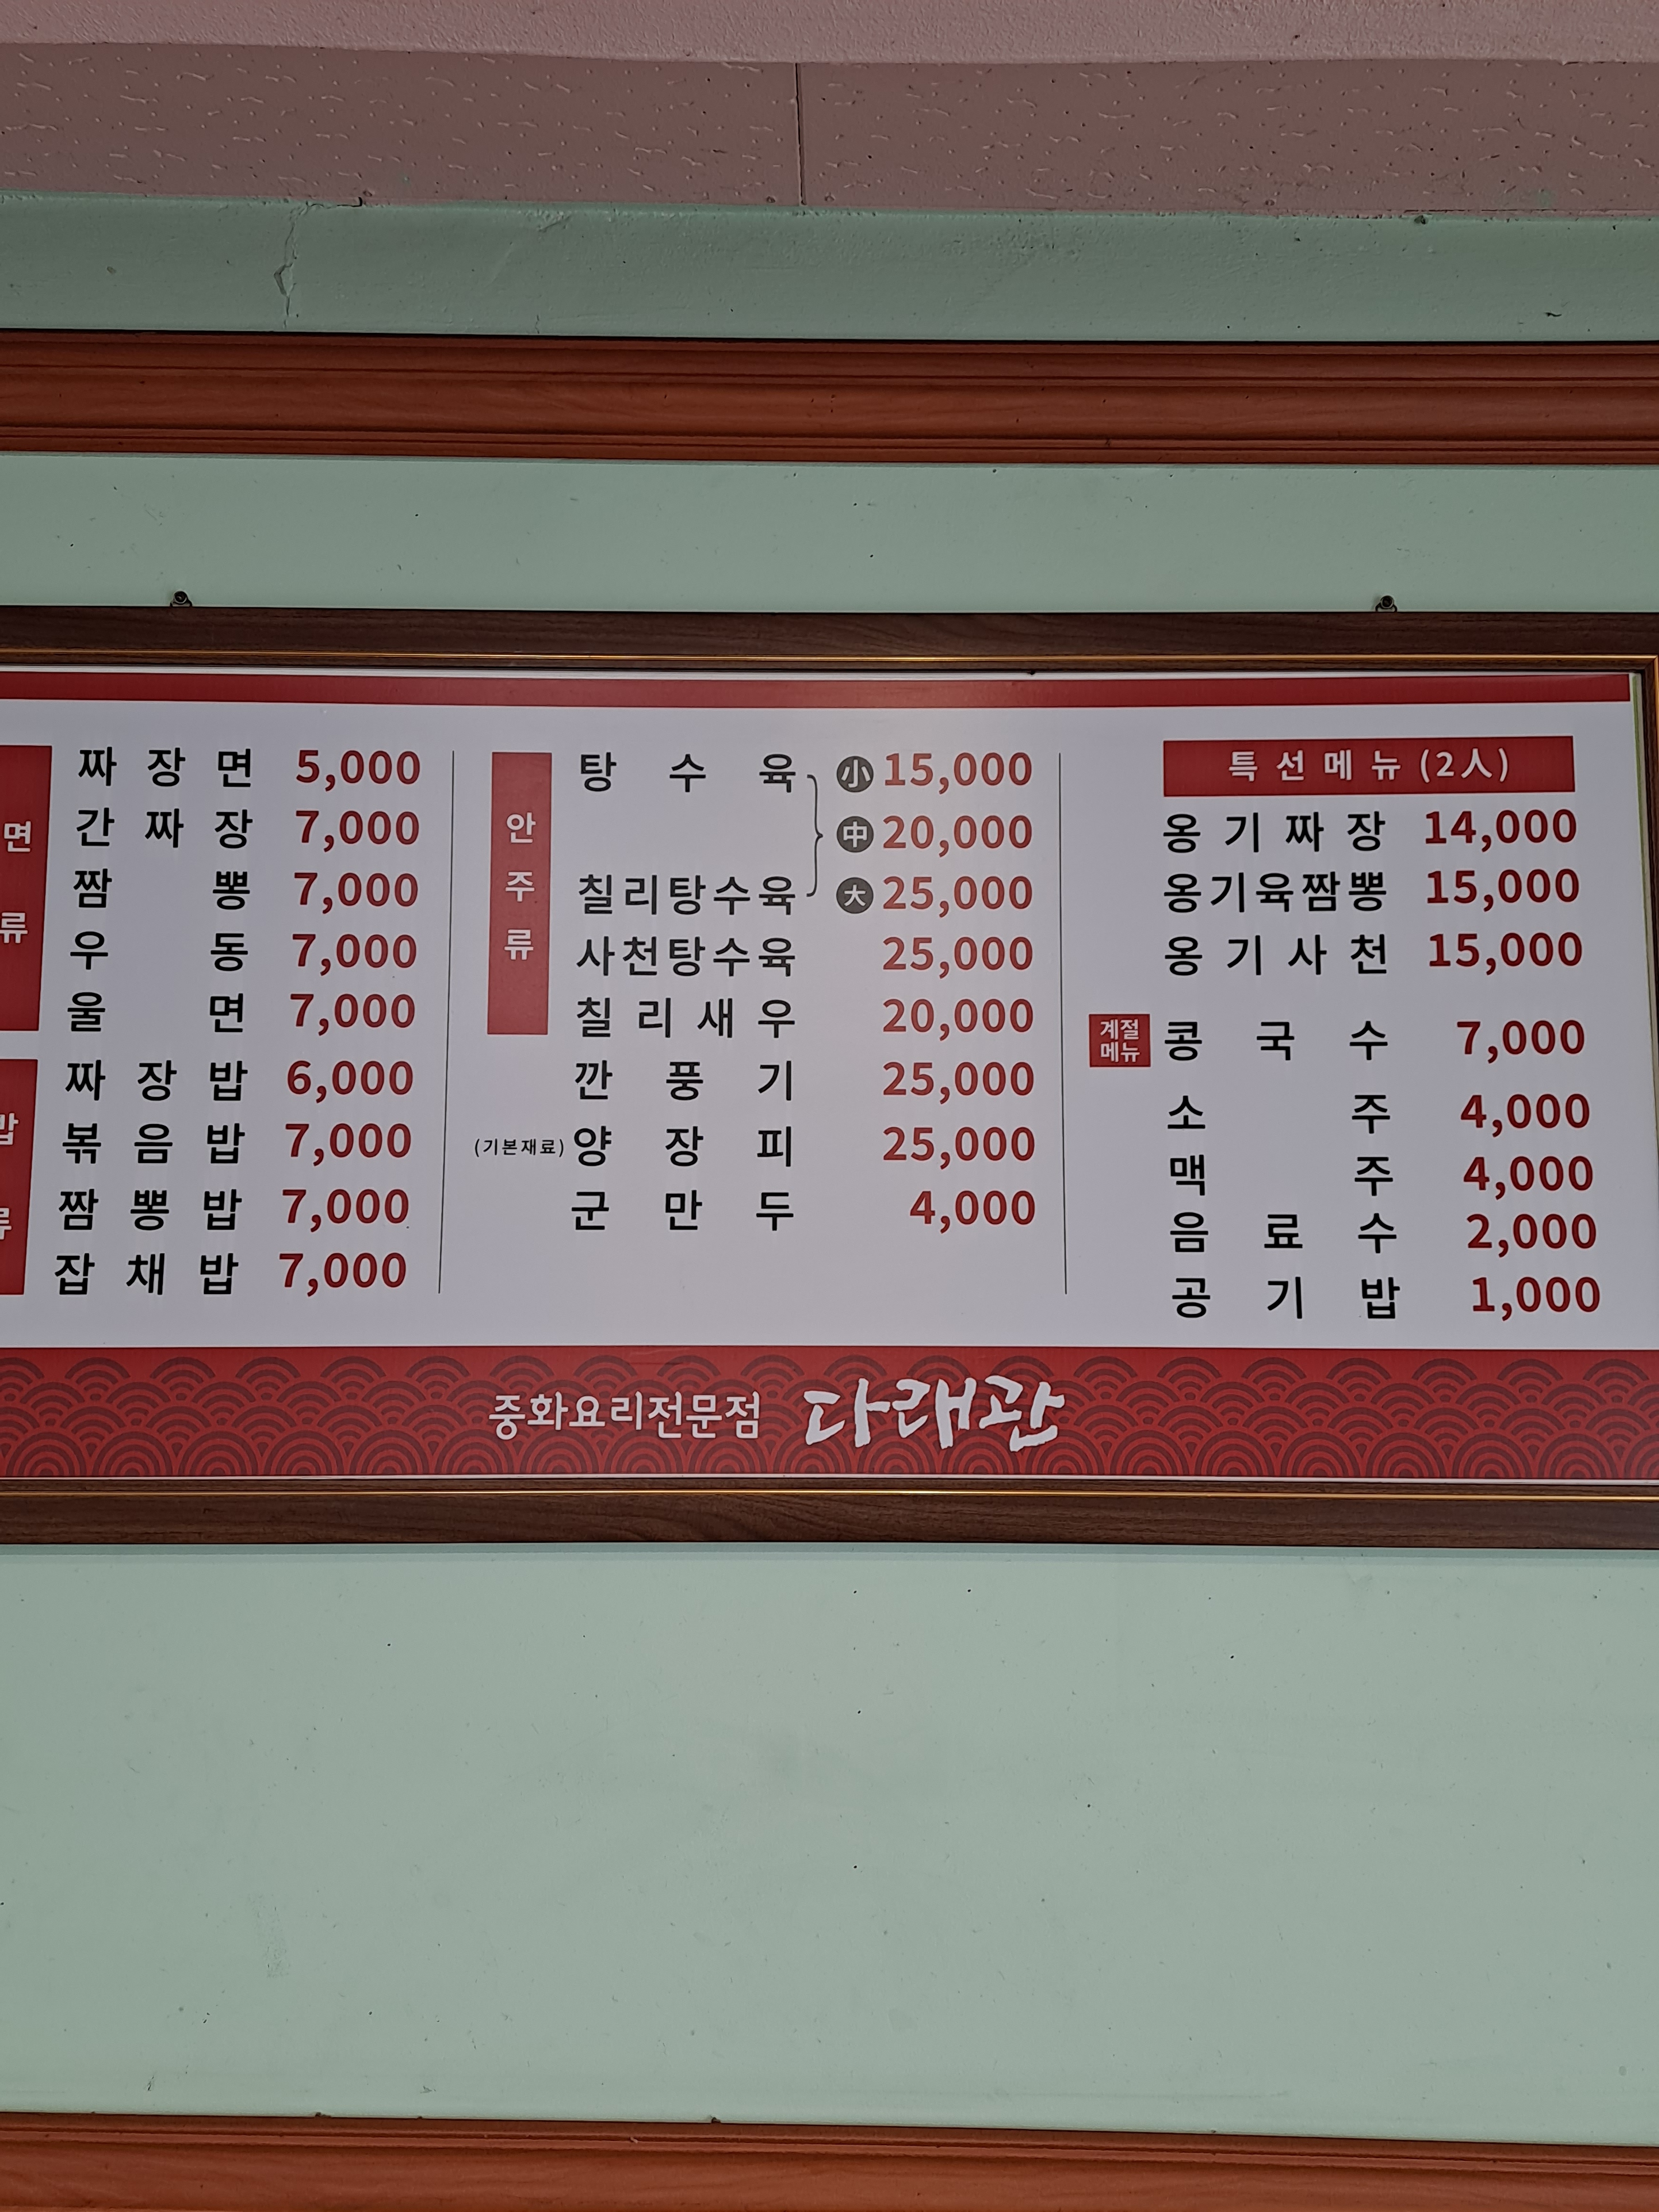 면류
짜장면 5,000
간짜장 7,000
짬뽕 7,000
우동 7,000
울면 7,000
밥류
짜장밥 6,000
볶음밥 7,000
짬뽕밥 7,000
잡채밥 7,000
안주류
탕수육 小 15,000
中 20,000
칠리탕수육 大 25,000
사천탕수육 25,000
칠리새우 20,000
깐풍기 25,000
(기본재료) 양장피 25,000
군만두 4,000
특선메뉴 (2人)
옹기짜장 14,000
옹기육짬뽕 15,000
옹기사천 15,000
계절
메뉴
콩국수 7,000
소주 4,000
맥주 4,000
음료수 2,000
공기밥 1,000
중화요리전문점 다래관